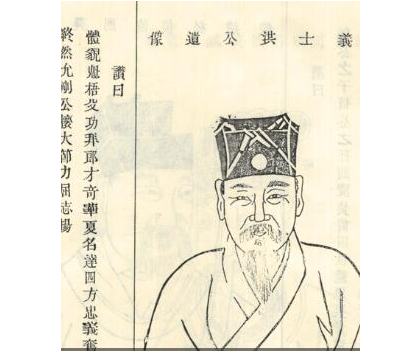 義士洪公遺像
讚曰
體貌魁梧功郎才奇華夏名達四方忠義奮
終然允剛公大節力屈志揚